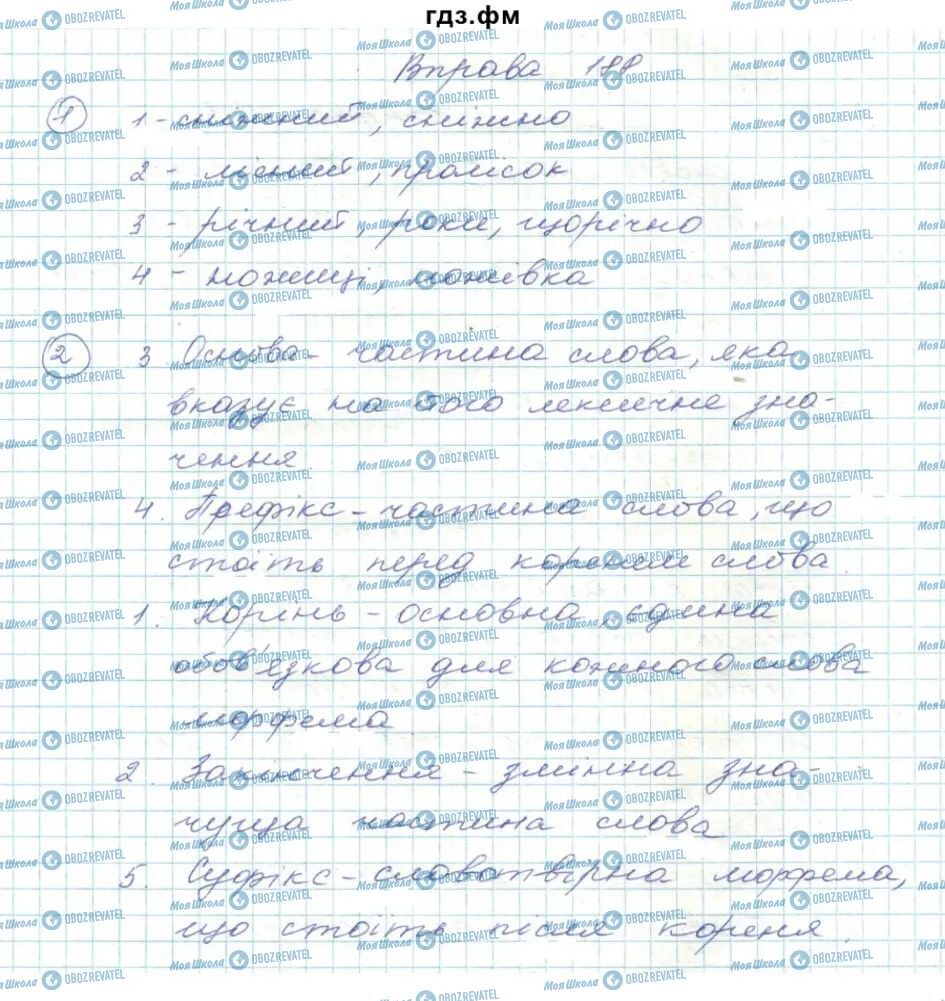 гдз.фм
Вправа 188
1 1 - сніжний, сніжно
2 - лісний, пролісок
3 - річний, роки, щорічно
4 - ножиці, ножівка
2 3 Основа - частина слова, яка
вказує на його лексичне зна-
чення
4. Префікс - частина слова, що
стоїть перед коренем слова
1. Корінь - основна, єдина
обов'язкова для кожного слова
морфема
2. Закінчення - змінна зна-
чуща частина слова
5. Суфікс - словотвірна морфема,
що стоїть після кореня.
МояШкола OBOZREVATEL